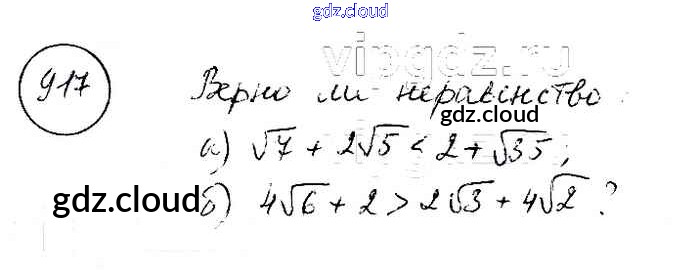 gdz.cloud
vipgdz.ru
917 Верно ли неравенство:
gdz.cloud
а) √7 + 2√5 < 2 + √35;
gdz.cloud
б) 4√6 + 2 > 2√3 + 4√2 ?